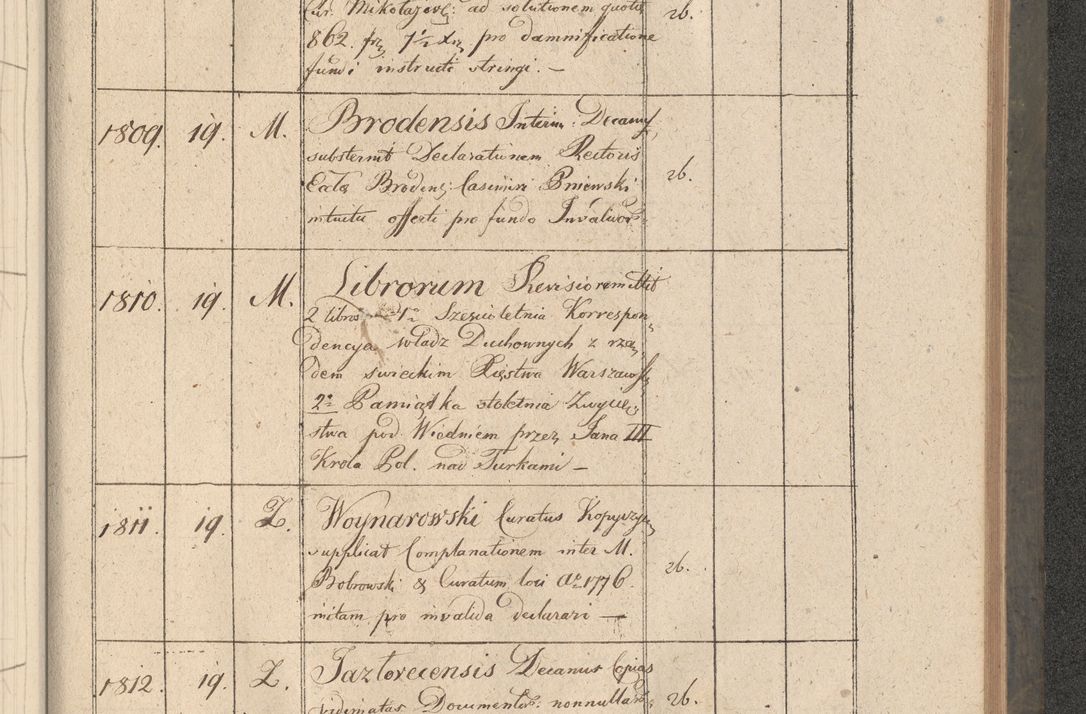 Cur. Mikołajovs: ad solutionem quotæ
862. frz 7½ Xrz pro damnificatione 26.
fundi instructi stringi. —
1809. 19. M. Brodensis Interim: Decanus
substernit Declarationem Rectoris
Ecclæ Brodens: Casimiri Pniewski 26.
intuitu offerti pro fundo Invalidor:
1810. 19. M. Librorum Revisio remittit
2 libros 1º Sześcioletnia Korrespon
dencya władz Duchownych z rzą
dem swieckim Xięstwa Warszawsk
2º Pamiątka stoletnia Zwycię
stwa pod Wiedniem przez Jana III
Krola Pol. nad Turkami —
1811. 19. Z. Woynarowski Curatus Kopyczyn
supplicat Complanationem inter M.
Bobrowski & Curatum loci Aº 1776. 26.
initam pro invalida declarari —
1812. 19. Z. Jazlovecensis Decanus Copias
vidimatas Documentor: nonnullar: 26.